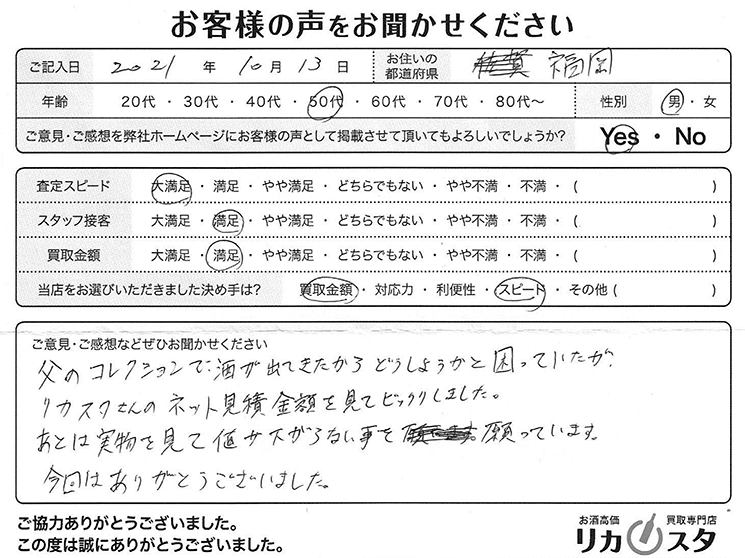 お客様の声をお聞かせください
ご記入日 2021 年 10 月 13 日 お住いの都道府県 福岡
年齢 20代 ・ 30代 ・ 40代 ・ 50代 ・ 60代 ・ 70代 ・ 80代～ 性別 男 ・ 女
ご意見・ご感想を弊社ホームページにお客様の声として掲載させて頂いてもよろしいでしょうか? Yes ・ No
査定スピード 大満足 ・ 満足 ・ やや満足 ・ どちらでもない ・ やや不満 ・ 不満 ・ ( )
スタッフ接客 大満足 ・ 満足 ・ やや満足 ・ どちらでもない ・ やや不満 ・ 不満 ・ ( )
買取金額 大満足 ・ 満足 ・ やや満足 ・ どちらでもない ・ やや不満 ・ 不満 ・ ( )
当店をお選びいただきました決め手は? 買取金額 ・ 対応力 ・ 利便性 ・ スピード ・ その他 ( )
ご意見・ご感想などぜひお聞かせください
父のコレクションで酒が出てきたからどうしようかと困っていたが、
リカスタさんのネット見積金額を見てビックリしました。
あとは実物を見て値が下がらない事を願っています。
今回はありがとうございました。
ご協力ありがとうございました。
この度は誠にありがとうございました。
お酒高価 買取専門店
リカスタ